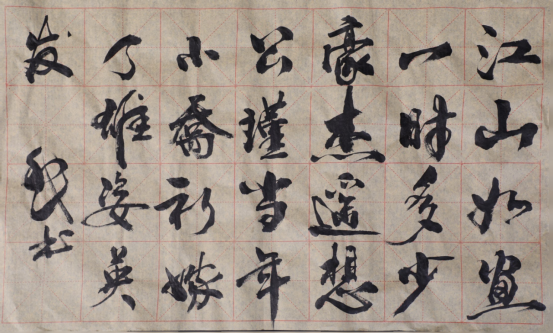 江山如画
一时多少
豪杰遥想
公瑾当年
小乔初嫁
了雄姿英
发